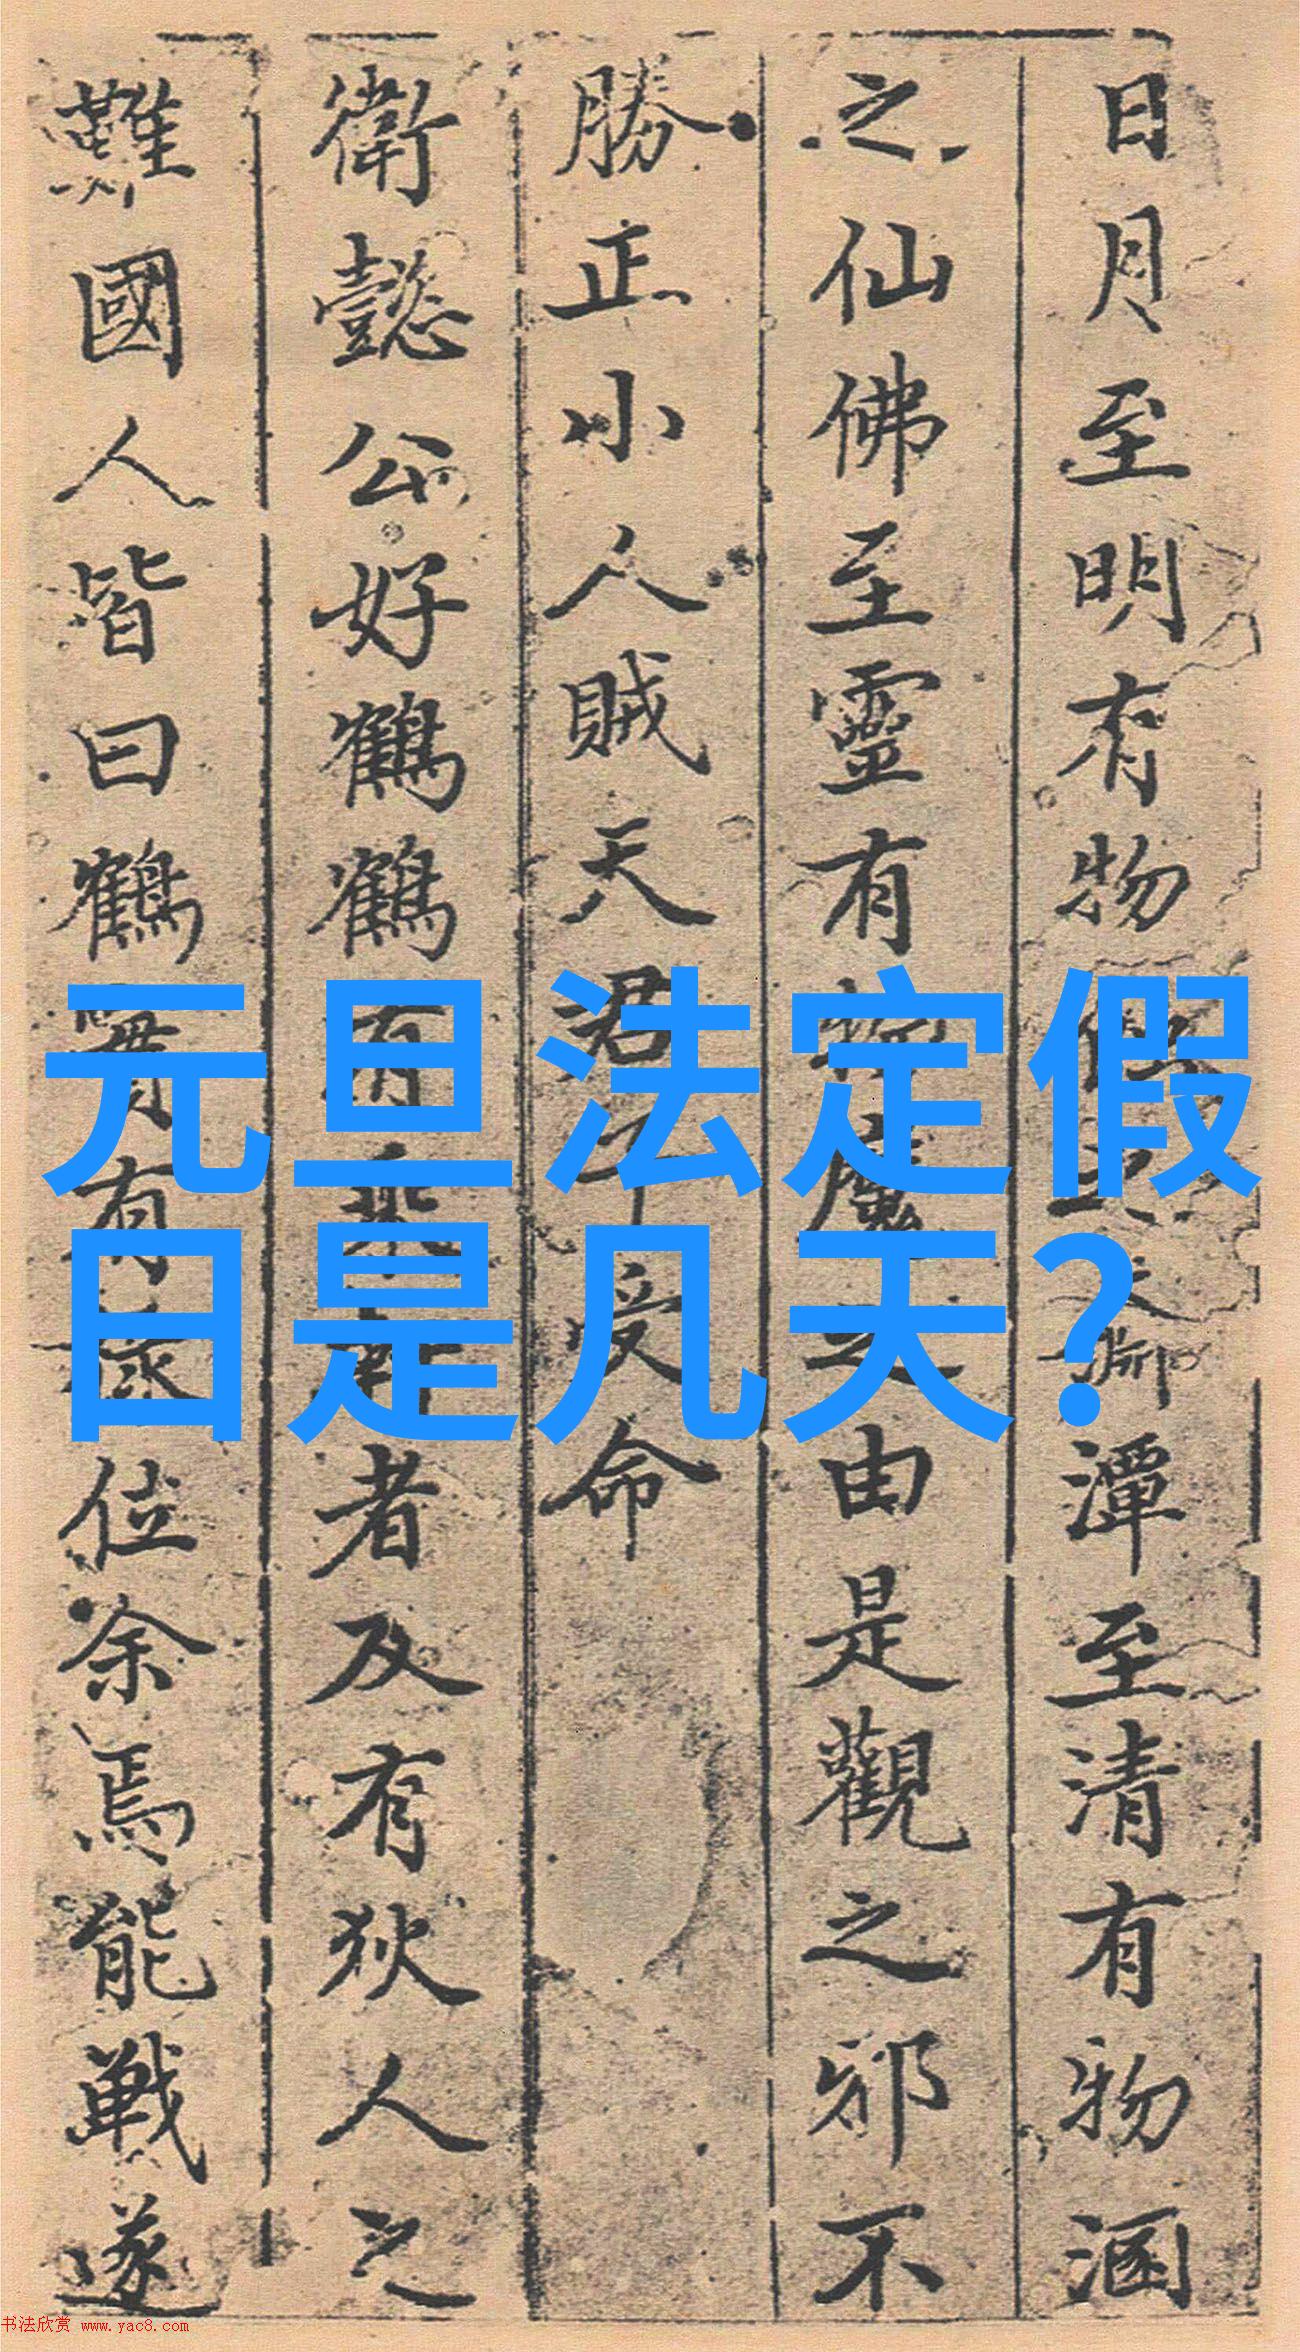 日月至明有物
潭至清有物涵
之仙佛至靈有
由是觀之邪不
勝正小人賊天君
受命
衛懿公好鶴鶴有
者及有狄人之
難國人皆曰鶴
位余焉能戰遂
元旦法定假
日是几天?
书法欣赏 www.yac8.com